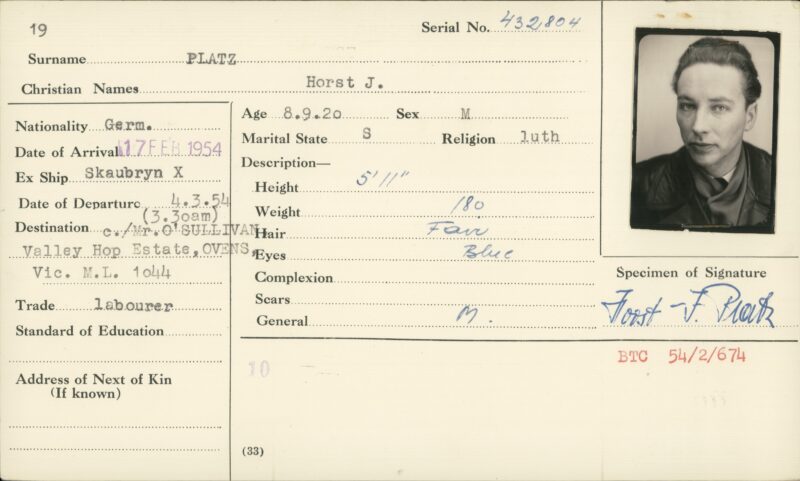 19
Serial No. 432804
Surname PLATZ
Christian Names Horst J.
Nationality Germ.
Date of Arrival 17 FEB 1954
Ex Ship Skaubryn X
Date of Departure 4.3.54
(3.30am)
Destination c./Mr.O'SULLIVAN,
Valley Hop Estate, OVENS,
Vic. M.L. 1044
Trade labourer
Standard of Education
Address of Next of Kin
(If known)
Age 8.9.20 Sex M
Marital State S Religion luth
Description—
Height 5'11"
Weight 180
Hair Fair
Eyes Blue
Complexion
Scars
General M.
10
(33)
Specimen of Signature
Horst J. Platz
BTC 54/2/674